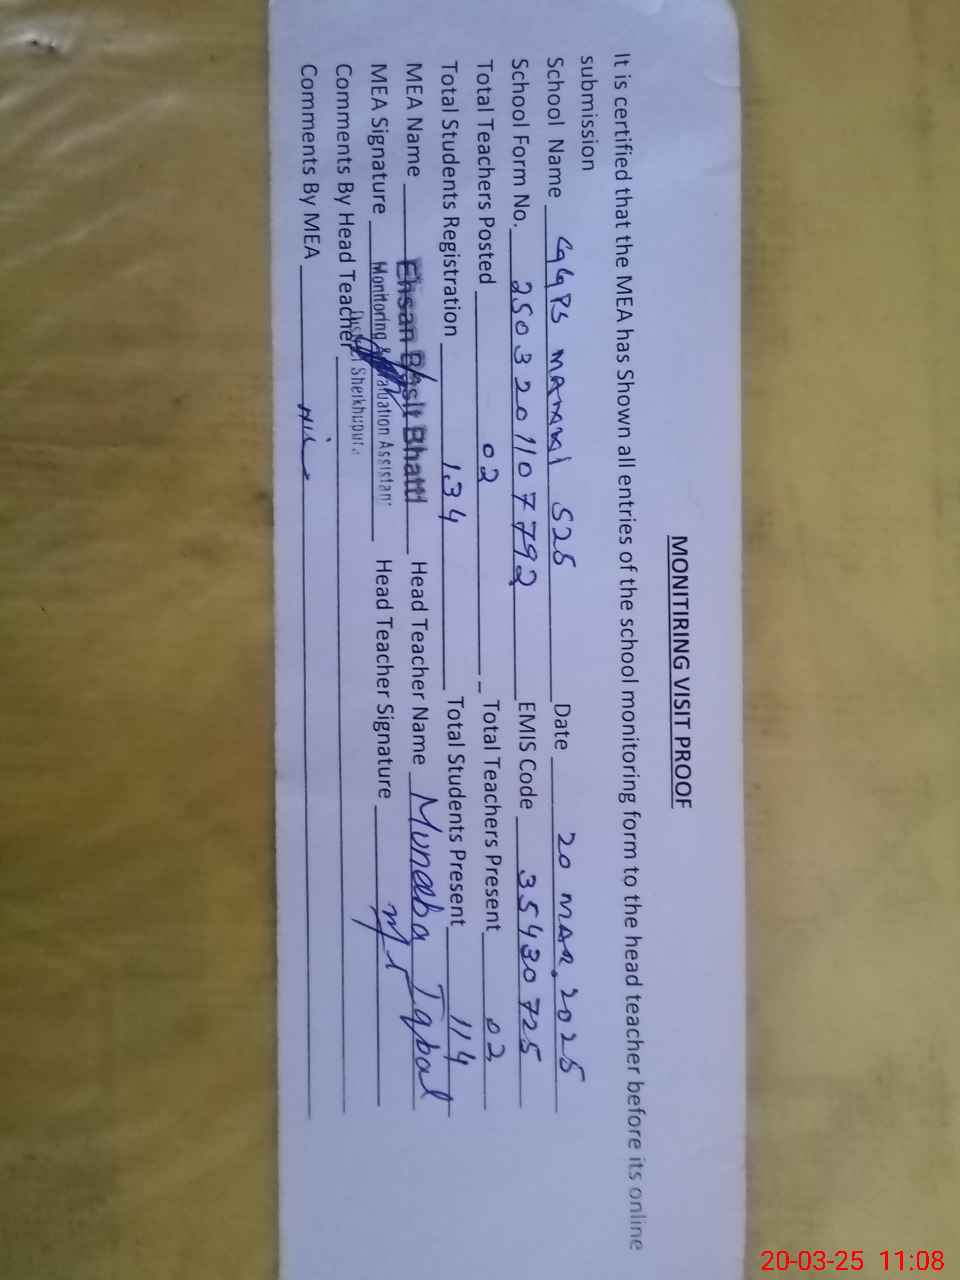 MONITIRING VISIT PROOF
It is certified that the MEA has Shown all entries of the school monitoring form to the head teacher before its online
submission
School Name GGPS 525 Date 20 MAR. 2025
School Form No. 2503201107792 EMIS Code 35430725
Total Teachers Posted 02 Total Teachers Present 02
Total Students Registration 134 Total Students Present 114
MEA Name Ehsan Basit Bhatti Head Teacher Name Iqbal
MEA Signature Monitoring & Evaluation Assistant Head Teacher Signature
District Sheikhupura
Comments By Head Teacher
Comments By MEA
20-03-25 11:08